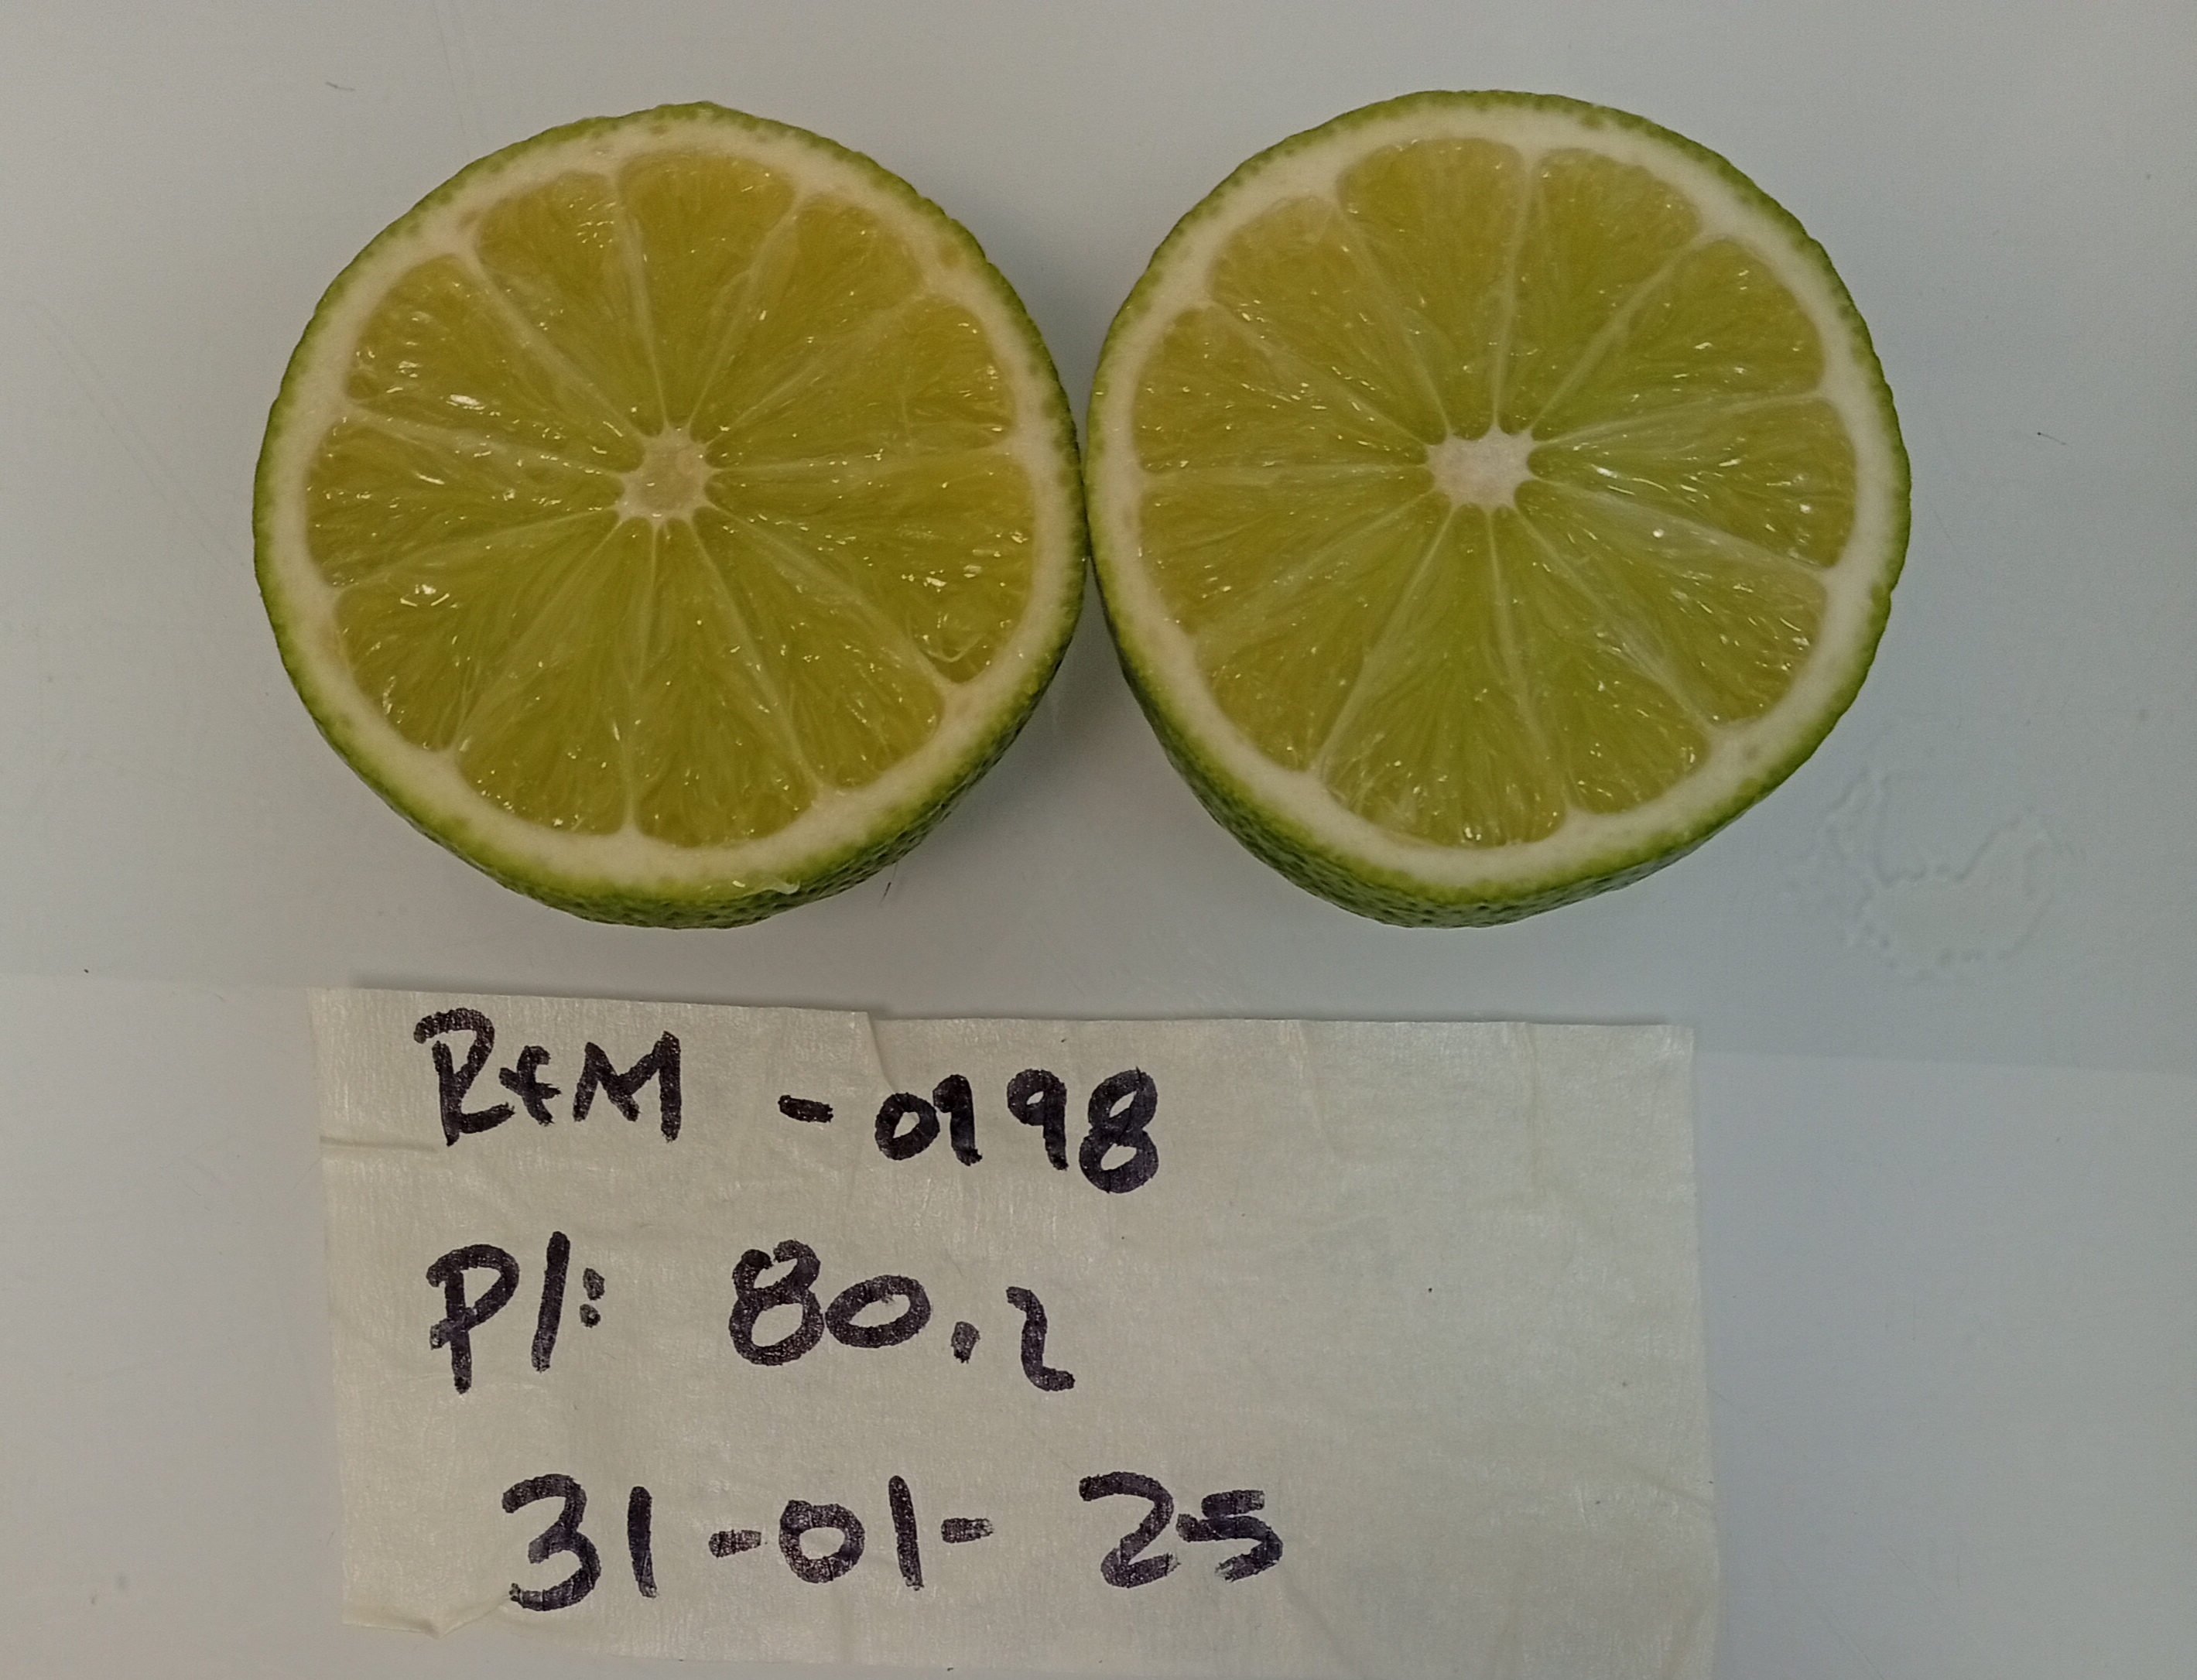 RFM -0198
P/: 80.2
31-01-25